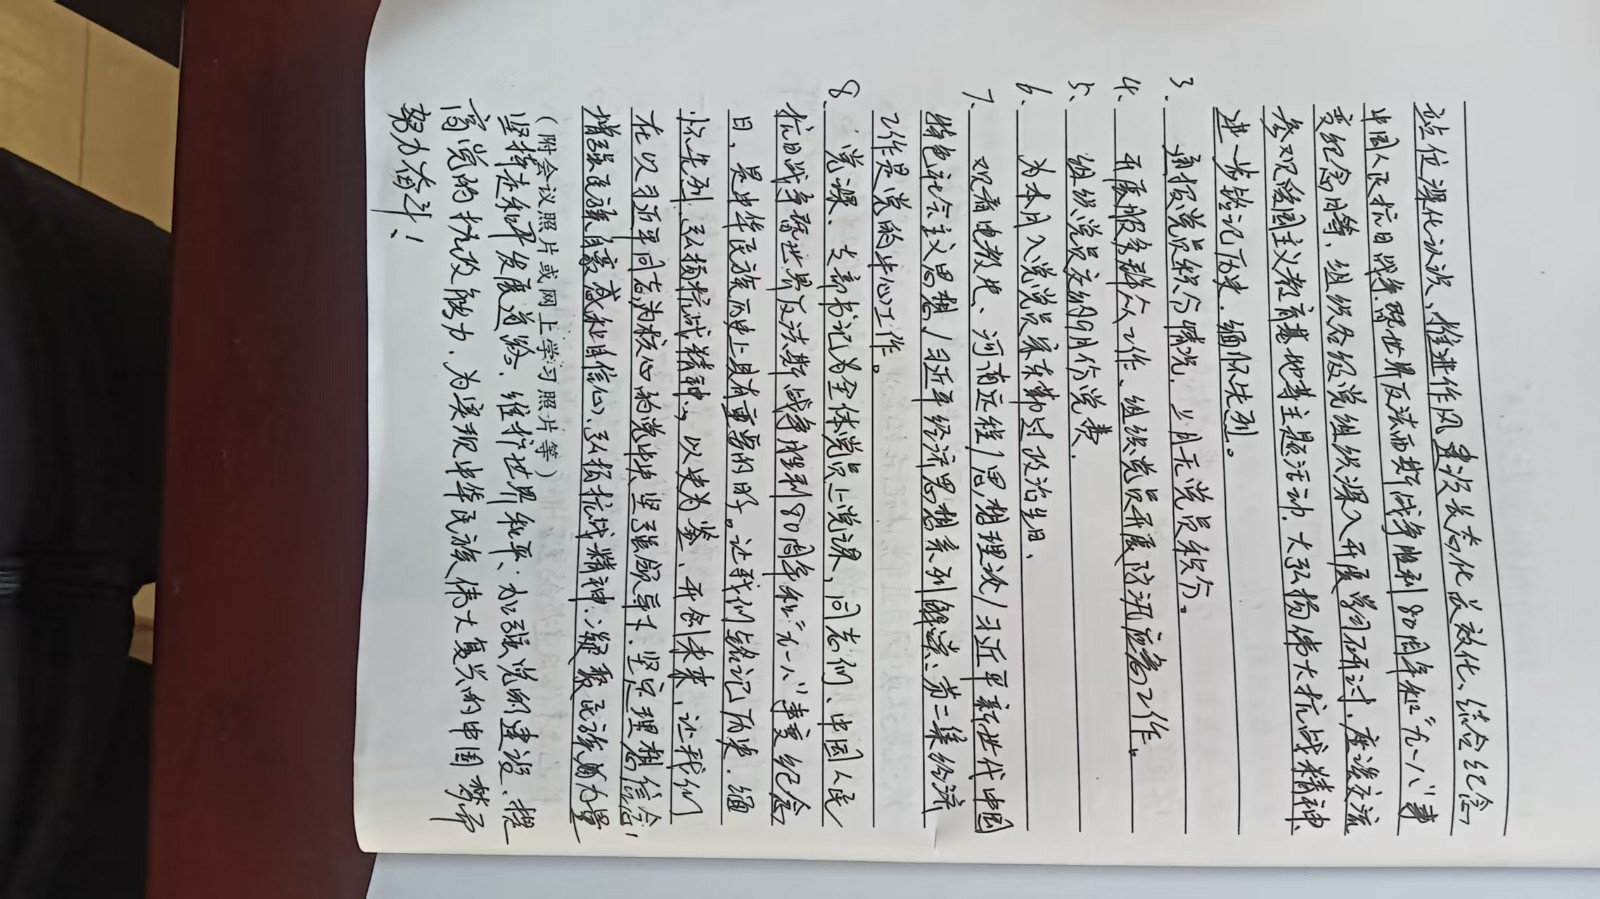 站位深化认识、推进作风建设长态化长效化、结合纪念
中国人民抗日战争暨世界反法西斯战争胜利80周年和“九一八”事
变纪念日等,组织各级党组织深入开展学习研讨,座谈交流
参观爱国主义教育基地等主题活动,大弘扬伟大抗战精神、
进一步铭记历史,缅怀先烈。
3、通报党员积分情况,9月无党员积分。
4、开展服务群众工作、组织党员开展防汛 工作。
5、组织党员交纳9月份党费、
6、为本月入党党员 过政治生日、
7、观看电教片、河南远程/思想理论/习近平新世代中国
特色社会主义思想/习近平经济思想系列解读、第二集经济
工作是党的中心工作。
8、党课、支部书记为全体党员上党课、同志们、中国人民
抗日战争暨世界反法斯战争胜利80周年和“九一八”事变纪念
日,是中华民族历史上具有重要的日子。让我们铭记历史,缅
怀先烈,弘扬抗战精神,以史为鉴,开创未来,让我们
在以习近平同志为核心的党中央坚强领导下,坚定理想信念,
增强民族自豪感和自信心,弘扬抗战精神,凝聚民族力量
(附会议照片或网上学习照片等)
坚持走和平发展道路,维护世界和平、加强党的建设,提
高党的执政能力,为实现中华民族伟大复兴的中国梦而
努力奋斗、!